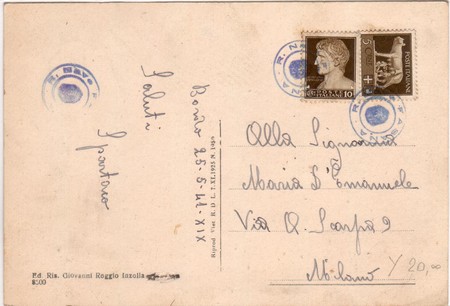 R. Nave
R. N
ZNA
10
POSTE
ITALIANE
5
POSTE ITALIANE
Saluti
Spartaco
25-5-42-XIX
Riprod. Viet. R. D. L. 7. XI. 1925 N.
Alla Signorina
Maria D'Emanuele
Via A. Scarpa 9
Milano
Y 20,00
Ed. Ris. Giovanni Roggio Inzolia
8500